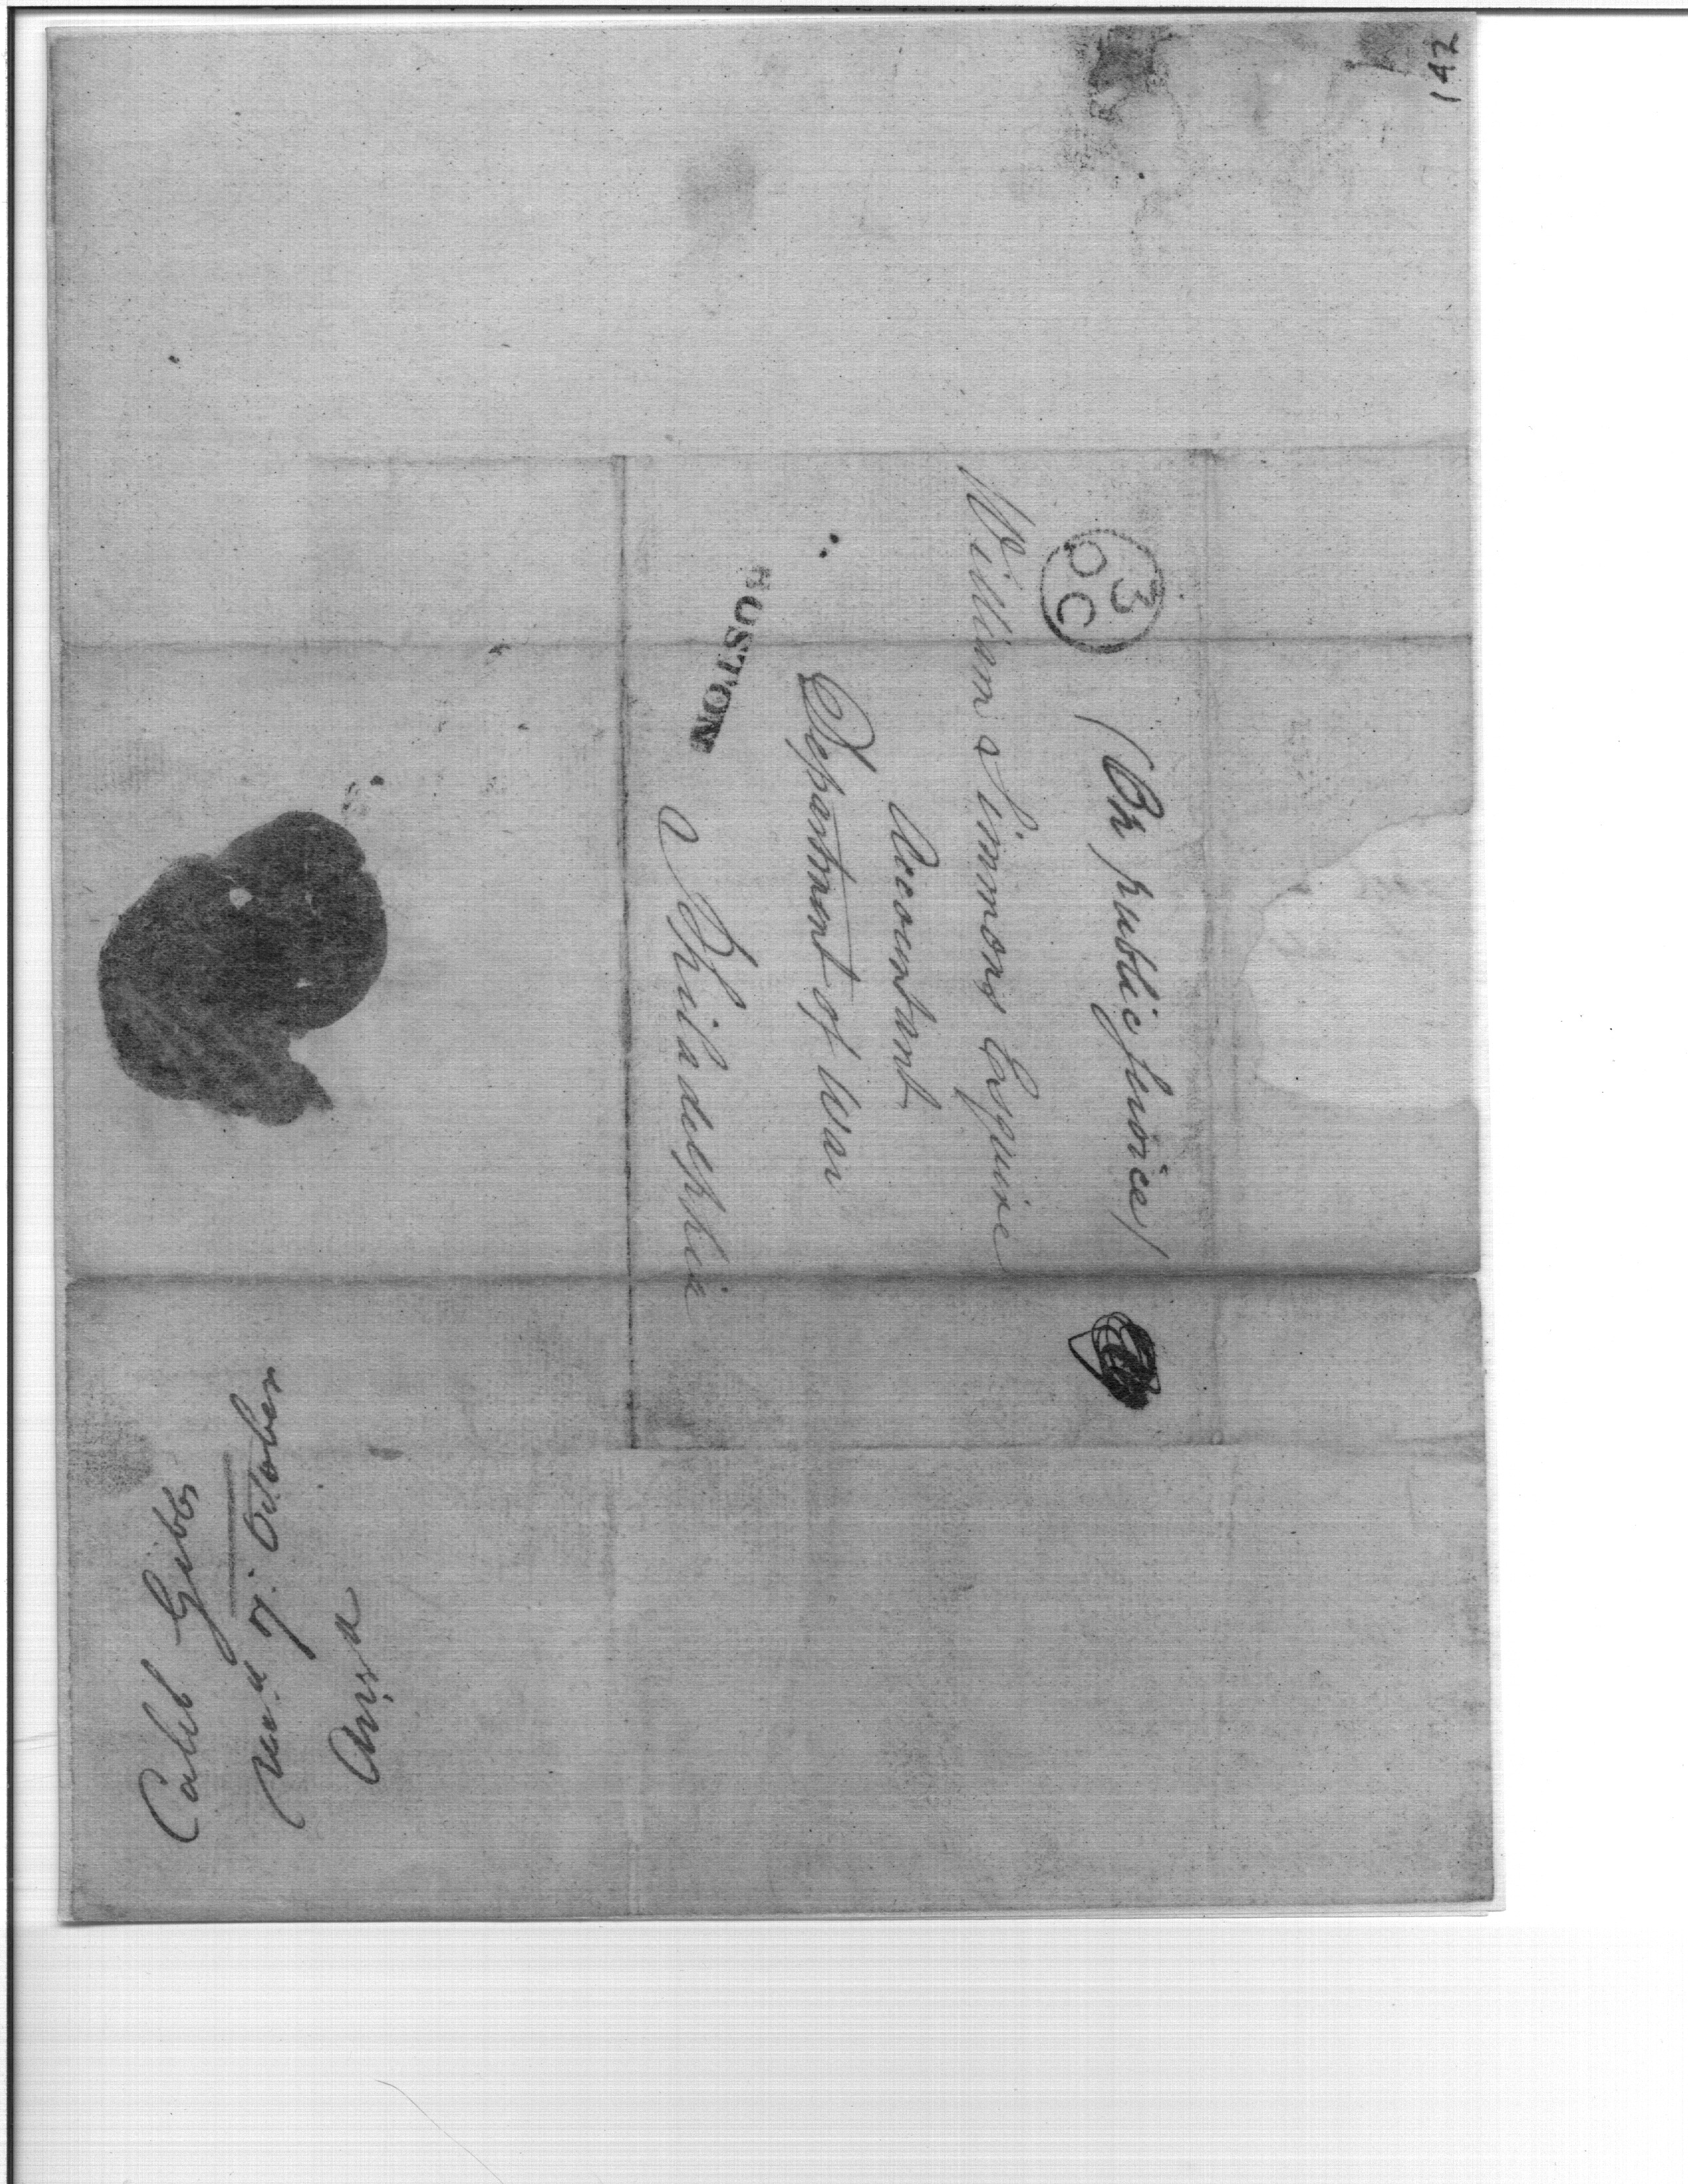 142
3
OC
(On public Service)
William Simmons Esquire
Accountant
Department of War
Philadelphia
BOSTON
Caleb Gibbs
Rec.d 7: October
Ansd